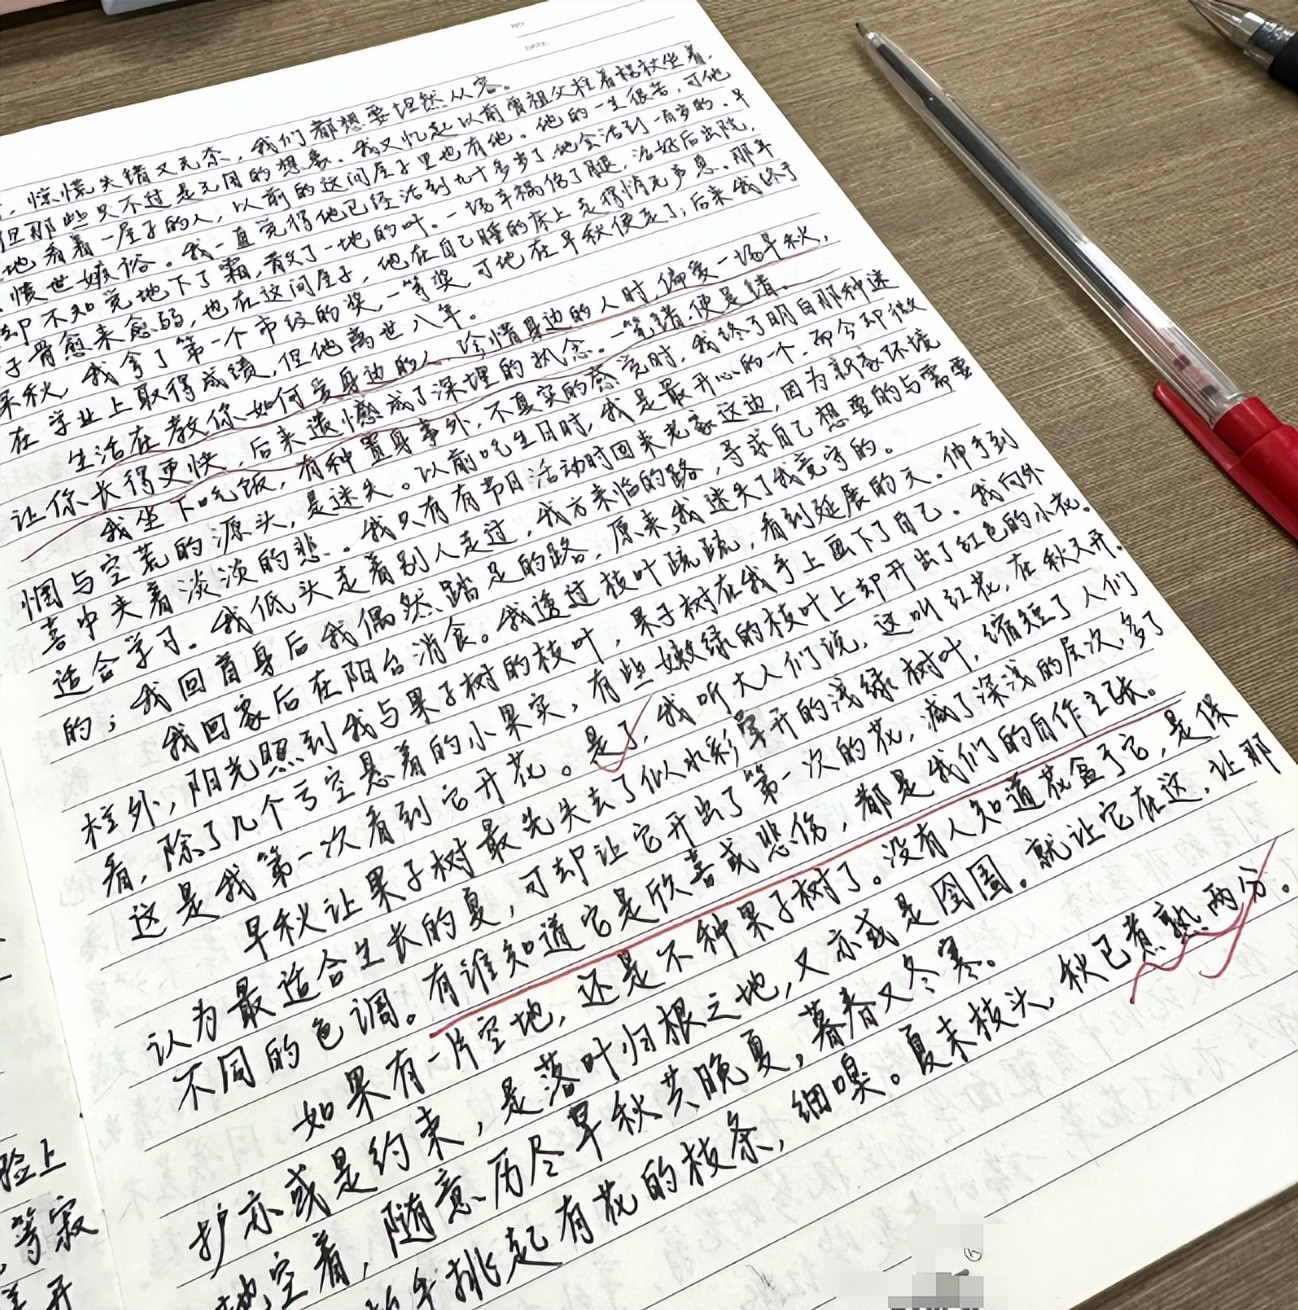 NO
DATE
，惊慌失错又无奈，我们都想要坦然从容。
但那些只不过是无用的想要。我又忆起以前曾祖父拄着拐杖坐着，
地看着一屋子的人，以前的这间屋子里也有他。他的一生很苦，可他
愤世嫉俗。我一直觉得他已经活到九十多岁了，他会活到一百岁的。早
却不知觉地下了霜，散了一地的叶。一场车祸伤了腿，治好后出院，
子骨愈来愈弱，也在这间屋子，他在自己睡的床上走得悄无声息。那年
末秋，我拿了第一个市级的奖，一等奖，可他在早秋便走了；后来我终于
在学业上取得成绩，但他离世八年。
生活在教你如何爱身边的人、珍惜身边的人时，偏爱一场早秋，
让你长得更快，后来遗憾成了深埋的执念。一等错便是错。
我坐下吃饭，有种置身事外，不真实的感觉时，我终了明白那种迷
惘与空荒的源头，是迷失。以前吃生日时，我是最开心的一个，而今却微
喜中夹着淡淡的悲。我只有有节日活动时回来老家这边，因为新家环境
适合学习。我低头走着别人走过，我方来临的路，寻求自己想要的与需要
的；我回首身后我偶然踏足的路，原来我迷失了我竟守的。
我回家后在阳台消食。我透过枝叶疏疏，看到延展的天。伸手到
栏外，阳光照到我与果子树的枝叶，果子树在我手上画下了自己。我向外
看，除了几个亏空悬着的小果实，有些嫩绿的枝叶上却开出了红色的小花。
这是我第一次看到它开花。是了，我听大人们说，这叫红花，在秋天开。
早秋让果子树最先失去了似水彩晕开的浅绿树叶，缩短了人们
认为最适合生长的夏，可却让它开出了第一次的花，减了深浅的层次，多了
不同的色调。有谁知道它是欣喜或悲伤，都是我们的自作主张。
如果有一片空地，还是不种果子树了。没有人知道花盒于它，是保
护亦或是约束，是落叶归根之地，又亦或是囹圄。就让它在这，让那
地空着，随意历尽早秋共晚夏，暮春又冬寒。
手挑起有花的枝条，细嗅。夏末枝头，秋已煮熟两分。
脸上
等寂
开